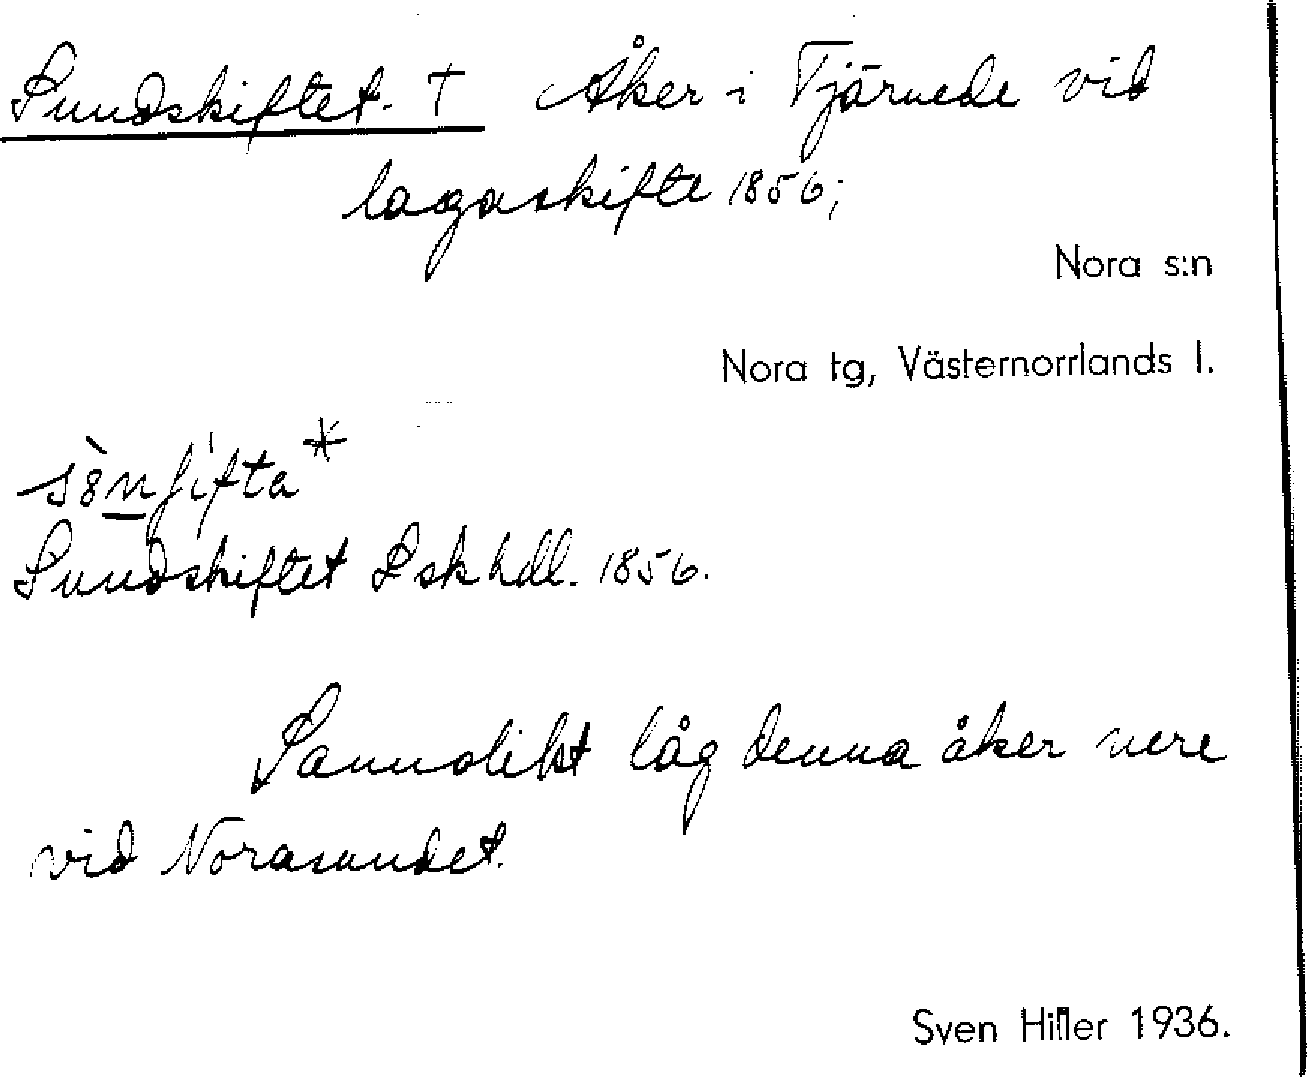 Sundskiftet. † Åker i Tjärnede vid
lagaskifte 1856;
Nora s:n
Nora tg, Västernorrlands l.
Sundskiftet Lskhdl. 1856.
Sannolikt låg denna åker nere
vid Norasundet.
Sven Hiller 1936.